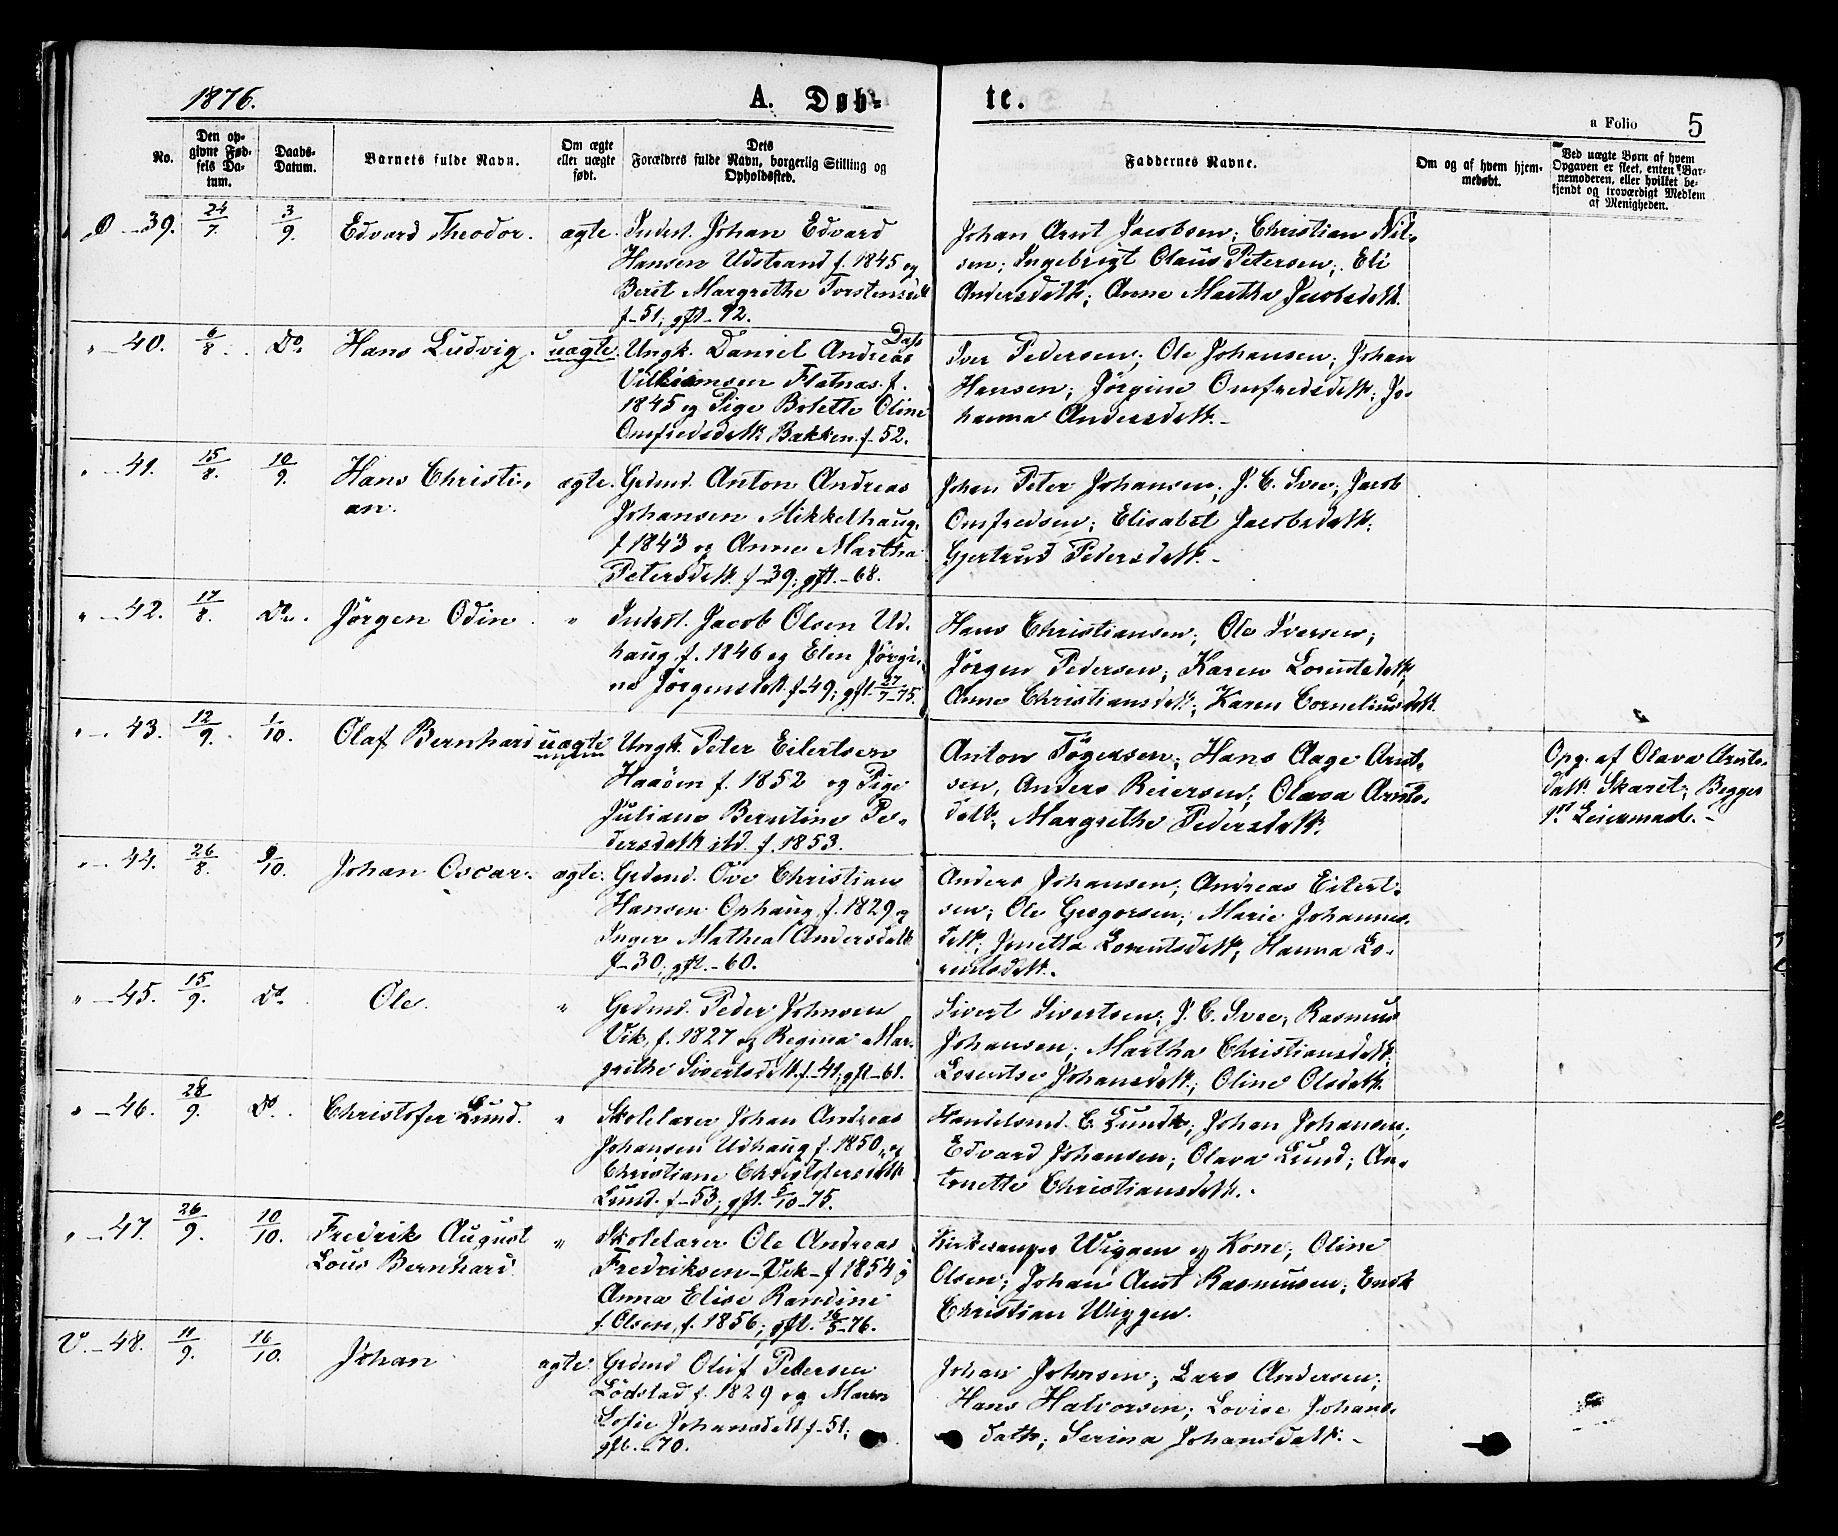 1876.
A. Døb-
te.
a Folio 5
No.
Den op-
givne Fød-
sels Da-
tum.
Daabs-
Datum.
Barnets fulde Navn.
Om ægte
eller uægte
født.
Dets
Forældres fulde Navn, borgerlig Stilling og
Opholdssted.
Faddernes Navne.
Om og af hvem hjem-
medøbt.
Ved uægte Børn af hvem
Opgaven er skeet, enten Bar-
nemoderen, eller hvilket be-
kjendt og troværdigt Medlem
af Menigheden.
Ø - 39. 24/7. 3/9. Edvard Theodor. ægte. Inderst. Johan Edvard
Hansen Udstrand f. 1845 og
Berit Margrethe Torstensdatt
f - 51; gft - 72.
Johan Arnt Jacobsen; Christian Nil-
sen; Ingebrigt Olaus Petersen; Eli
Andersdatt; Anne Martha Jacobsdatt.
" - 40. 6/8. Do. Hans Ludvig. uægte. Ungk. Daniel Andreas Dass
Villiamsen Flatnæs f.
1845 og Pige Bolette Oline
Omfredsdatt Bakken f - 52.
Iver Pedersen; Ole Johansen; Johan
Hansen; Jørgine Omfredsdatt; Jo-
hanna Andersdatt. -
" - 41. 15/8. 10/9. Hans Christi-
an. ægte. Grdmd. Anton Andreas
Johansen Mikkelhaug.
f 1843 og Anne Martha
Petersdatt. f - 39; gft. - 68.
Johan Peter Johansen; J. C. Svee; Jacob
Omfredsen; Elisabet Jacobsdatt;
Gjertrud Pedersdatt. -
" - 42. 17/8. Do. Jørgen Odin. " Inderst. Jacob Olsen Ud-
haug f. 1846 og Elen Jørgi-
ne Jørgensdatt f - 49; gft. 27/7 - 75.
Hans Christiansen; Ole Iversen;
Jørgen Pedersen; Karen Lorentsdatt
Anne Christiansdatt; Karen Corneliusdatt.
" - 43. 12/9. 1/10. Olaf Bernhard uægte Ungk. Peter Eilertsen
Haaøen f. 1852 og Pige
Juliane Berntine Pe-
dersdatt ibd. f. 1853.
Anton Tøgersen; Hans Aage Arnt-
sen, Anders Reiersen; Olava Arnts-
datt; Margrethe Pedersdatt.
Opg. af Olava Arnts-
datt Skaret; Begges
1ste Leiermaal. -
" - 44. 26/8. 9/10. Johan Oscar. ægte. Grdmd. Ove Christian
Hansen Ophaug. f. 1829 og
Inger Mathea Andersdatt
f - 30; gft. - 60.
Anders Johansen; Andreas Eilert-
sen; Ole Gregorsen; Marie Johannes-
datt; Jonetta Lorentsdatt; Hanna Lo-
rentsdatt.
" - 45. 15/9. Do. Ole. " Grdmd. Peder Johnsen
Vik, f. 1827 og Regina Mar-
grethe Sivertsdatt. f - 41; gft - 61.
Sivert Sivertsen; J. C. Svee; Rasmus
Johansen; Martha Christiansdatt;
Lorentse Johansdatt; Oline Olsdatt.
" - 46. 28/9. Do. Christofer Lund. " Skolelærer Johan Andreas
Johansen Udhaug f. 1850, og
Christiane Christofersdatt
Lund. f - 53; gft. 5/10 - 75.
Handelsmd. C. Lund; Johan Johansen;
Edvard Johansen; Olava Lund; An-
tonette Christiansdatt. -
" - 47. 26/9. 10/10. Fredrik August
Louis Bernhard. " Skolelærer Ole Andreas
Fredriksen - Vik - f 1854 og
Anna Elise Randine
f. Olsen, f. 1856; gft. 16/5 - 76.
Kirkesanger Wiggen og Kone; Oline
Olsen; Johan Arnt Rasmusen; Enok
Christian Wiggen.
V. - 48. 11/9. 16/10. Johan ægte Grdmd Oluf Petersen
Lødstad f. 1829 og Maren
Sofie Johansdatt f - 51;
gft. - 70.
Johan Johnsen; Lars Andersen;
Hans Halvorsen; Lovise Johans-
datt; Serina Johansdatt. -